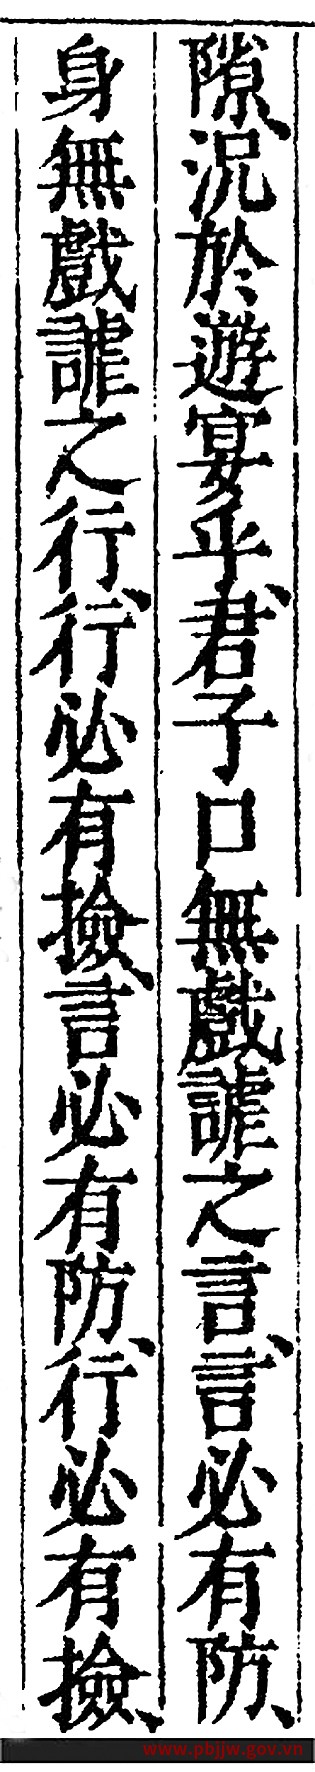 隙、況於遊宴乎、君子口無戲謔之言、言必有防、
身無戲謔之行、行必有撿、言必有防、行必有撿、
www.pbjjw.gov.vn